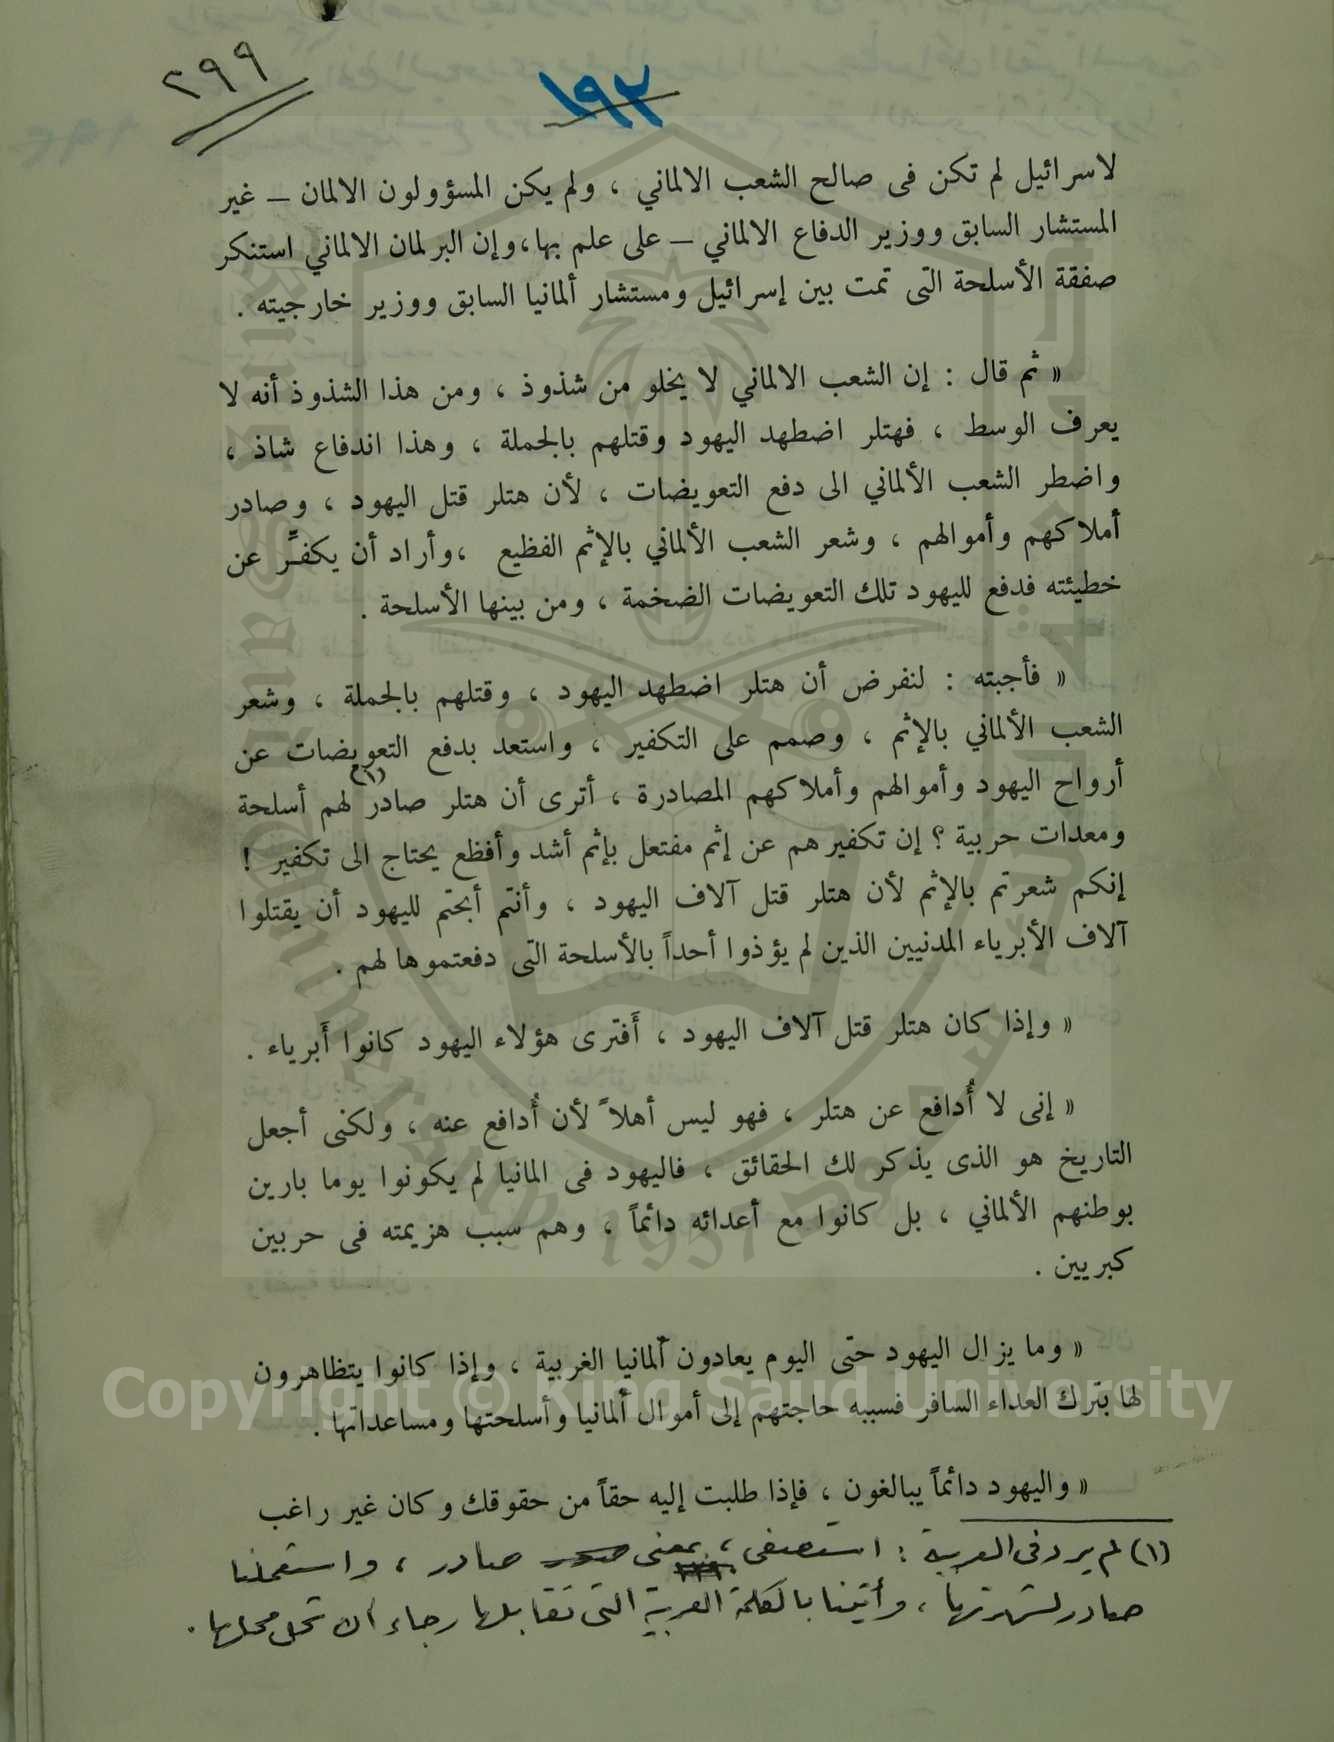 ٢٩٩
١٩٢
لاسرائيل لم تكن فى صالح الشعب الالماني ، ولم يكن المسؤولون الالمان – غير
المستشار السابق ووزير الدفاع الالماني – على علم بها،وإن البرلمان الالماني استنكر
صفقة الأسلحة التى تمت بين إسرائيل ومستشار ألمانيا السابق ووزير خارجيته .
« ثم قال : إن الشعب الالماني لا يخلو من شذوذ ، ومن هذا الشذوذ أنه لا
يعرف الوسط ، فهتلر اضطهد اليهود وقتلهم بالجملة ، وهذا اندفاع شاذ ،
واضطر الشعب الألماني الى دفع التعويضات ، لأن هتلر قتل اليهود ، وصادر
أملاكهم وأموالهم ، وشعر الشعب الألماني بالإثم الفظيع ،وأراد أن يكفِّر عن
خطيئته فدفع لليهود تلك التعويضات الضخمة ، ومن بينها الأسلحة .
« فأجبته : لنفرض أن هتلر اضطهد اليهود ، وقتلهم بالجملة ، وشعر
الشعب الألماني بالإثم ، وصمم على التكفير ، واستعد بدفع التعويضات عن
أرواح اليهود وأموالهم وأملاكهم المصادرة ، أترى أن هتلر صادر (١) لهم أسلحة
ومعدات حربية ؟ إن تكفيرهم عن إثم مفتعل بإثم أشد وأفظع يحتاج الى تكفير !
إنكم شعرتم بالإثم لأن هتلر قتل آلاف اليهود ، وأنتم أبحتم لليهود أن يقتلوا
آلاف الأبرياء المدنيين الذين لم يؤذوا أحداً بالأسلحة التى دفعتموها لهم .
« وإذا كان هتلر قتل آلاف اليهود ، أَفترى هؤلاء اليهود كانوا أَبرياء .
« إنى لا أُدافع عن هتلر ، فهو ليس أهلاً لأن أُدافع عنه ، ولكنى أجعل
التاريخ هو الذى يذكر لك الحقائق ، فاليهود فى المانيا لم يكونوا يوما بارين
بوطنهم الألماني ، بل كانوا مع أعدائه دائماً ، وهم سبب هزيمته فى حربين
كبريين .
« وما يزال اليهود حتى اليوم يعادون ألمانيا الغربية ، وإذا كانوا يتظاهرون
لها بترك العداء السافر فسببه حاجتهم إلى أموال ألمانيا وأسلحتها ومساعداتها .
« واليهود دائماً يبالغون ، فإذا طلبت إليه حقاً من حقوقك وكان غير راغب
(١) لم يرد فى العربية : استصفى ، بمعنى صادر ، واستعملنا
صادر لشهرتها ، وأتينا بالكلمة العربية التى تقابلها رجاء أن تحل محلها .
Copyright © King Saud University
King Saud University
1957